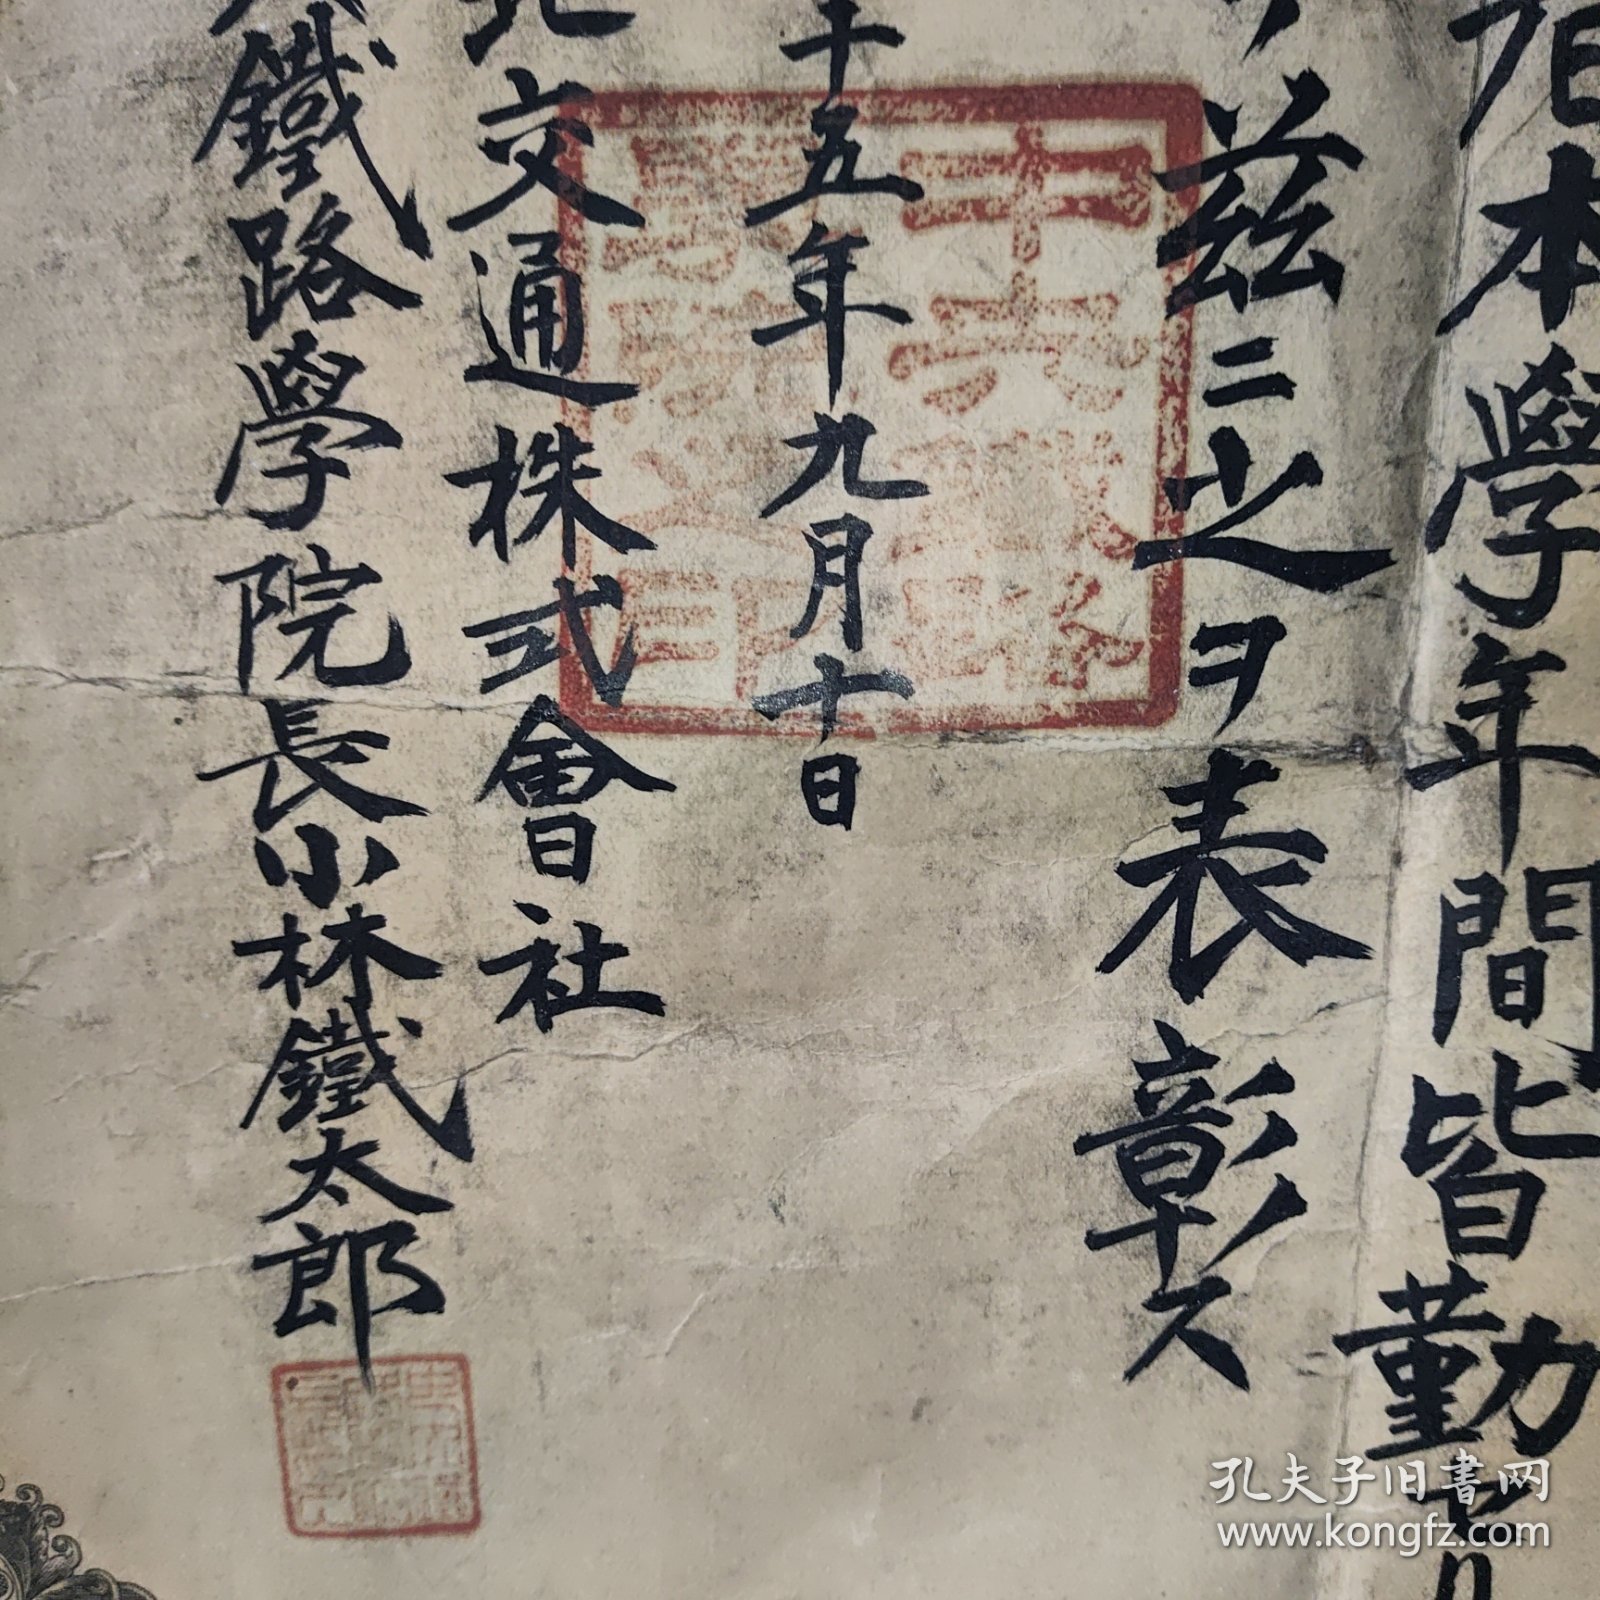 者本學年間皆勤セリ
茲ニ之ヲ表彰ス
十五年九月十日
北交通株式會社
鐵路學院長小林鐵太郎
中央鐵路
學院之印
孔夫子旧書网
www.kongfz.com